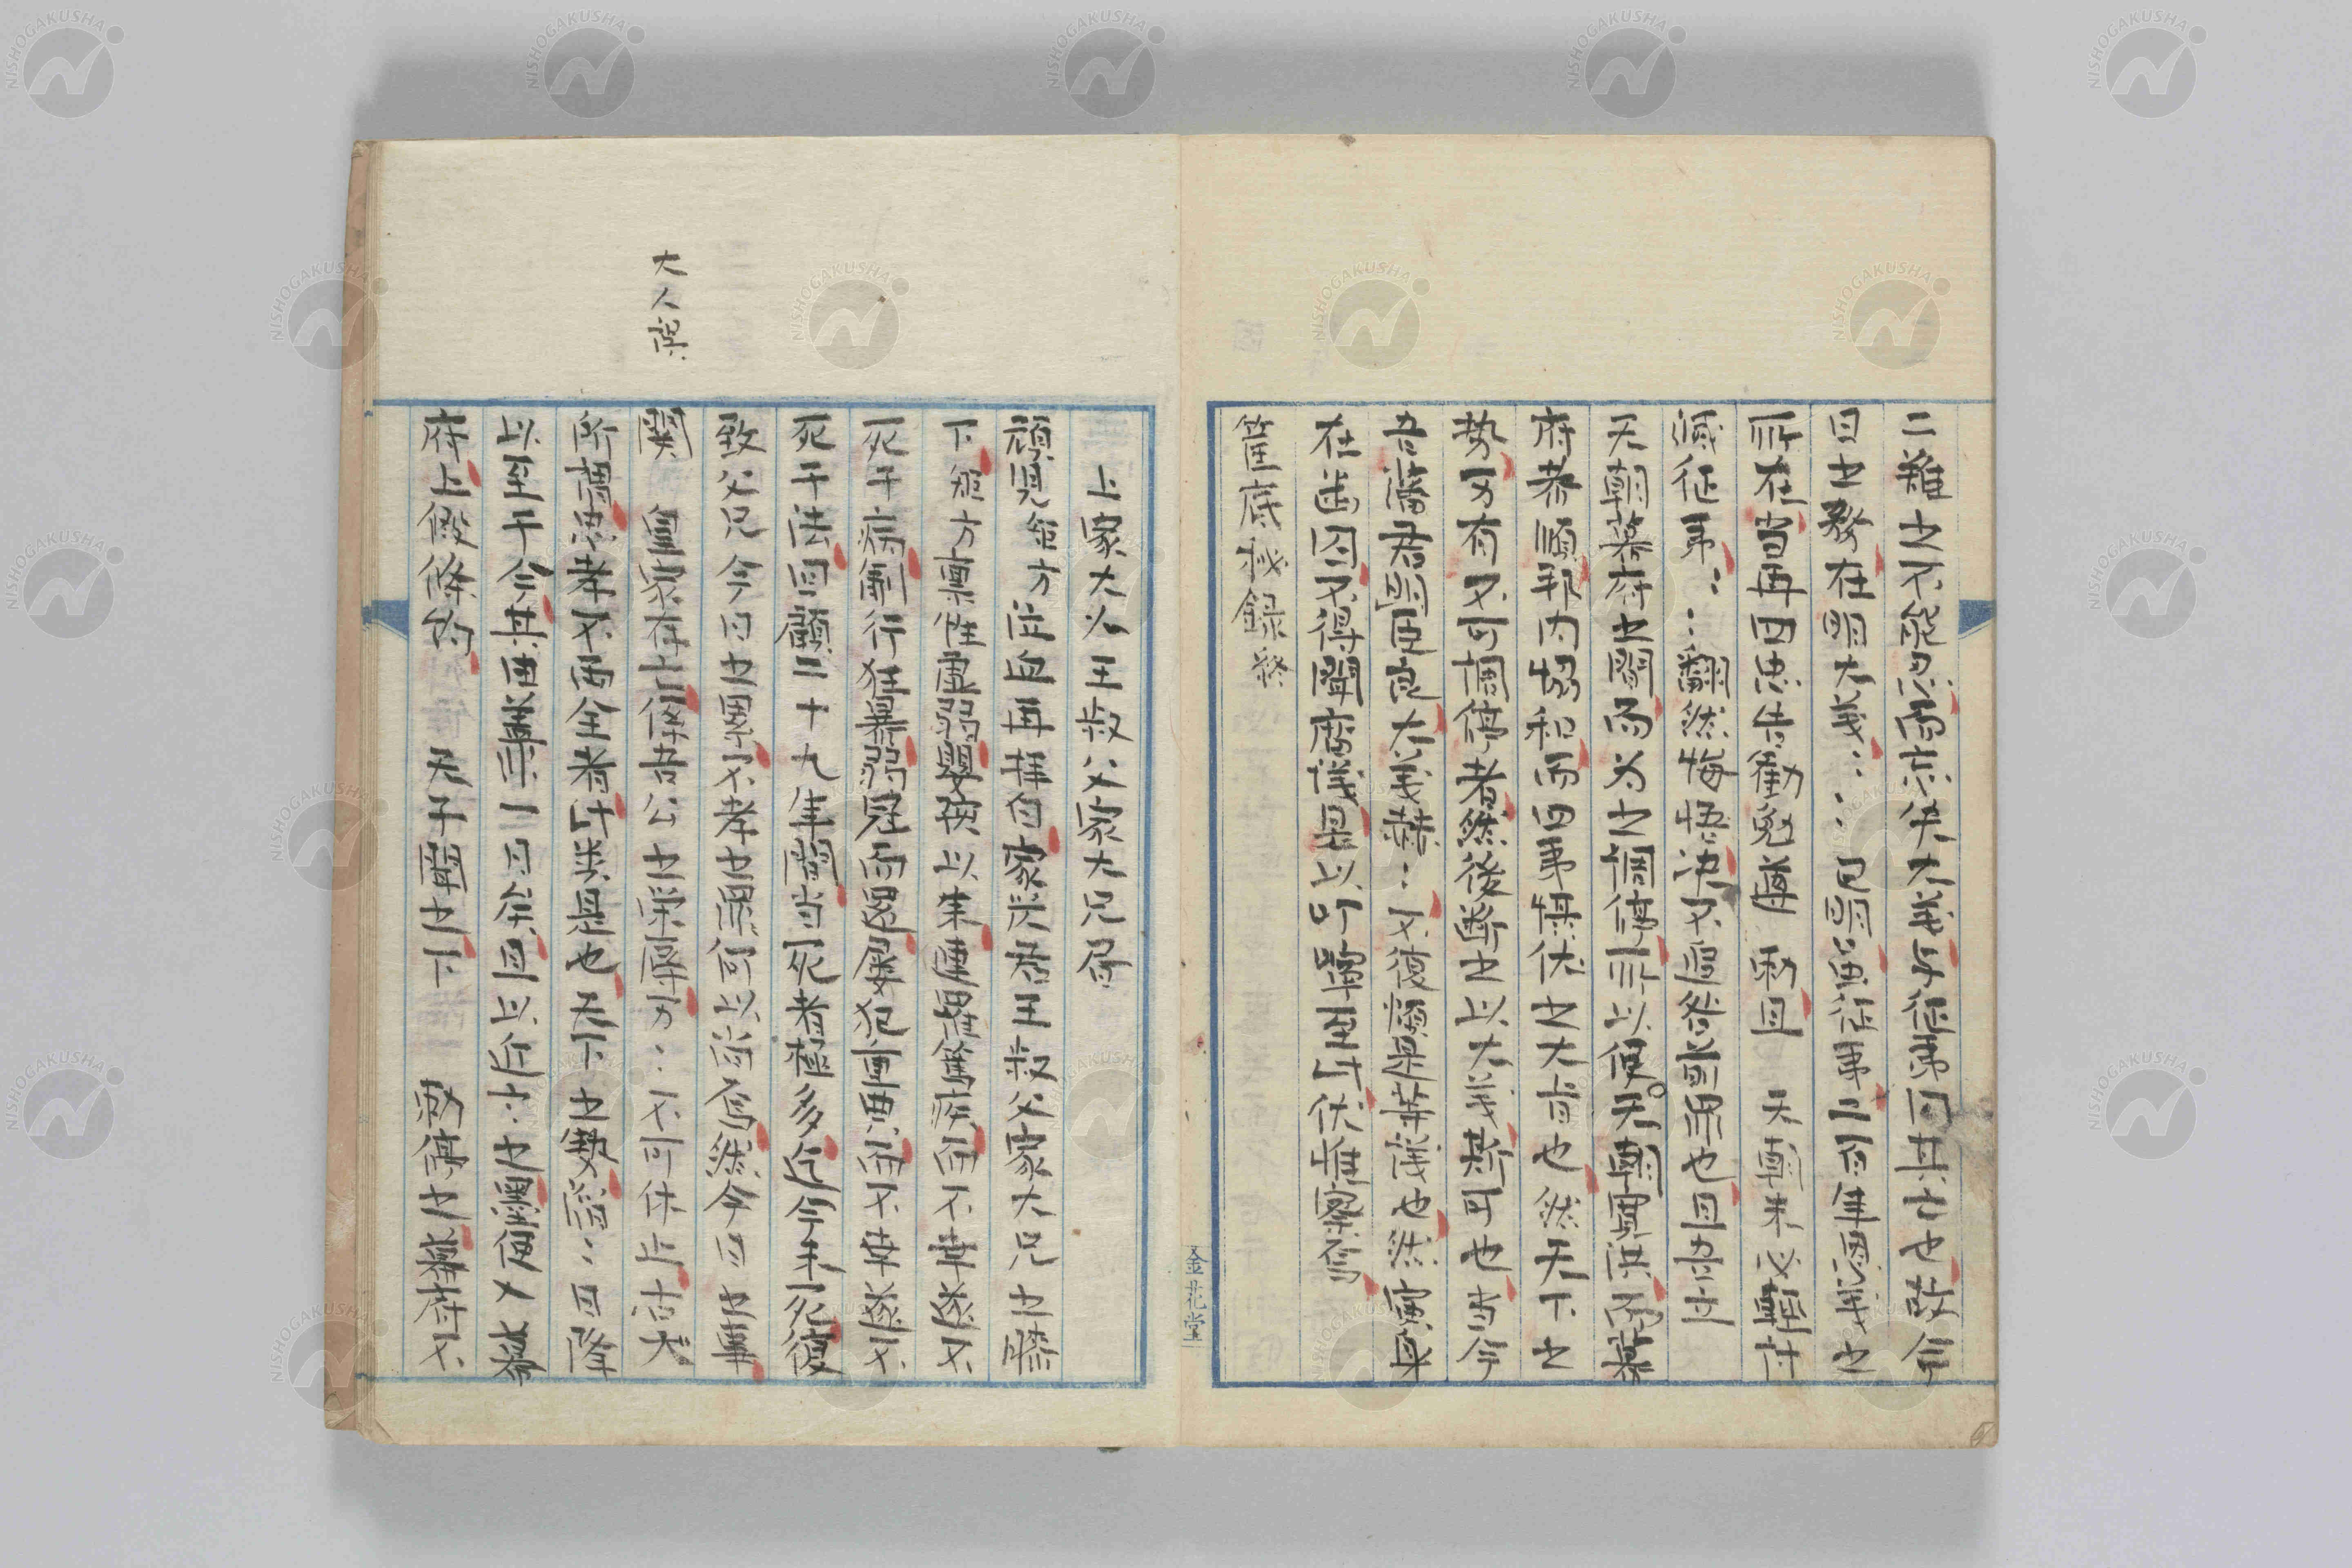 二難之不能忍而忘決大義与征幕曰其亡也故今
日之務在明大義〻〻已明無征幕二百年恩義之
所在当再四忠告勧勉遵　勅且　天朝未必軽討
滅征幕〻〻翻然悔悟決不追咎前罪也且吾立
天朝幕府之間而為之調停所以使天朝寛洪而幕
府恭順邦内協和而四事慎伏之大旨也然天下之
勢万有不可調停者然後断之以大義斯可也当今
吾藩君明臣良大義赫〻不復須是等議也然寅身
在歯囚不得聞廟議是以所論出此伏推察焉
筐底秘録終
金花堂
上家大父王叔父家大兄書
頑児矩方泣血再拝白家厳君王叔父家大兄之膝
下矩方稟性虚弱嬰孩以来連罹篤疾而不幸遂不
死于病制行狂暴弱冠而還屡犯重典而不幸遂不
死于法回顧三十九年間当死者極多迄今未死復
致父兄今日之累不孝之罪何以尚焉然今日之事
関　皇家存亡係吾公之栄辱万〻不可休止古人
所謂忠孝不両全者此類是也天下之勢滔〻日降
以至于今其由蓋非一日矣且以近
府上條約　天子聞之下　勅停之幕府不
大人案